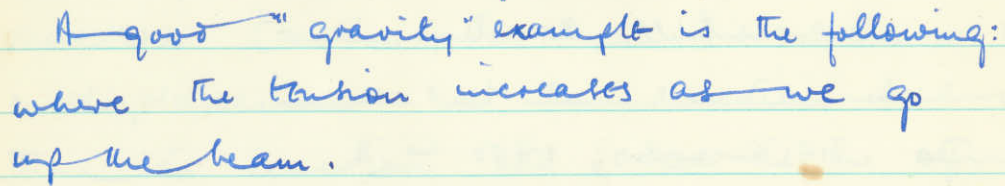 A good "gravity" example is the following:
where the tension increases as we go
up the beam.